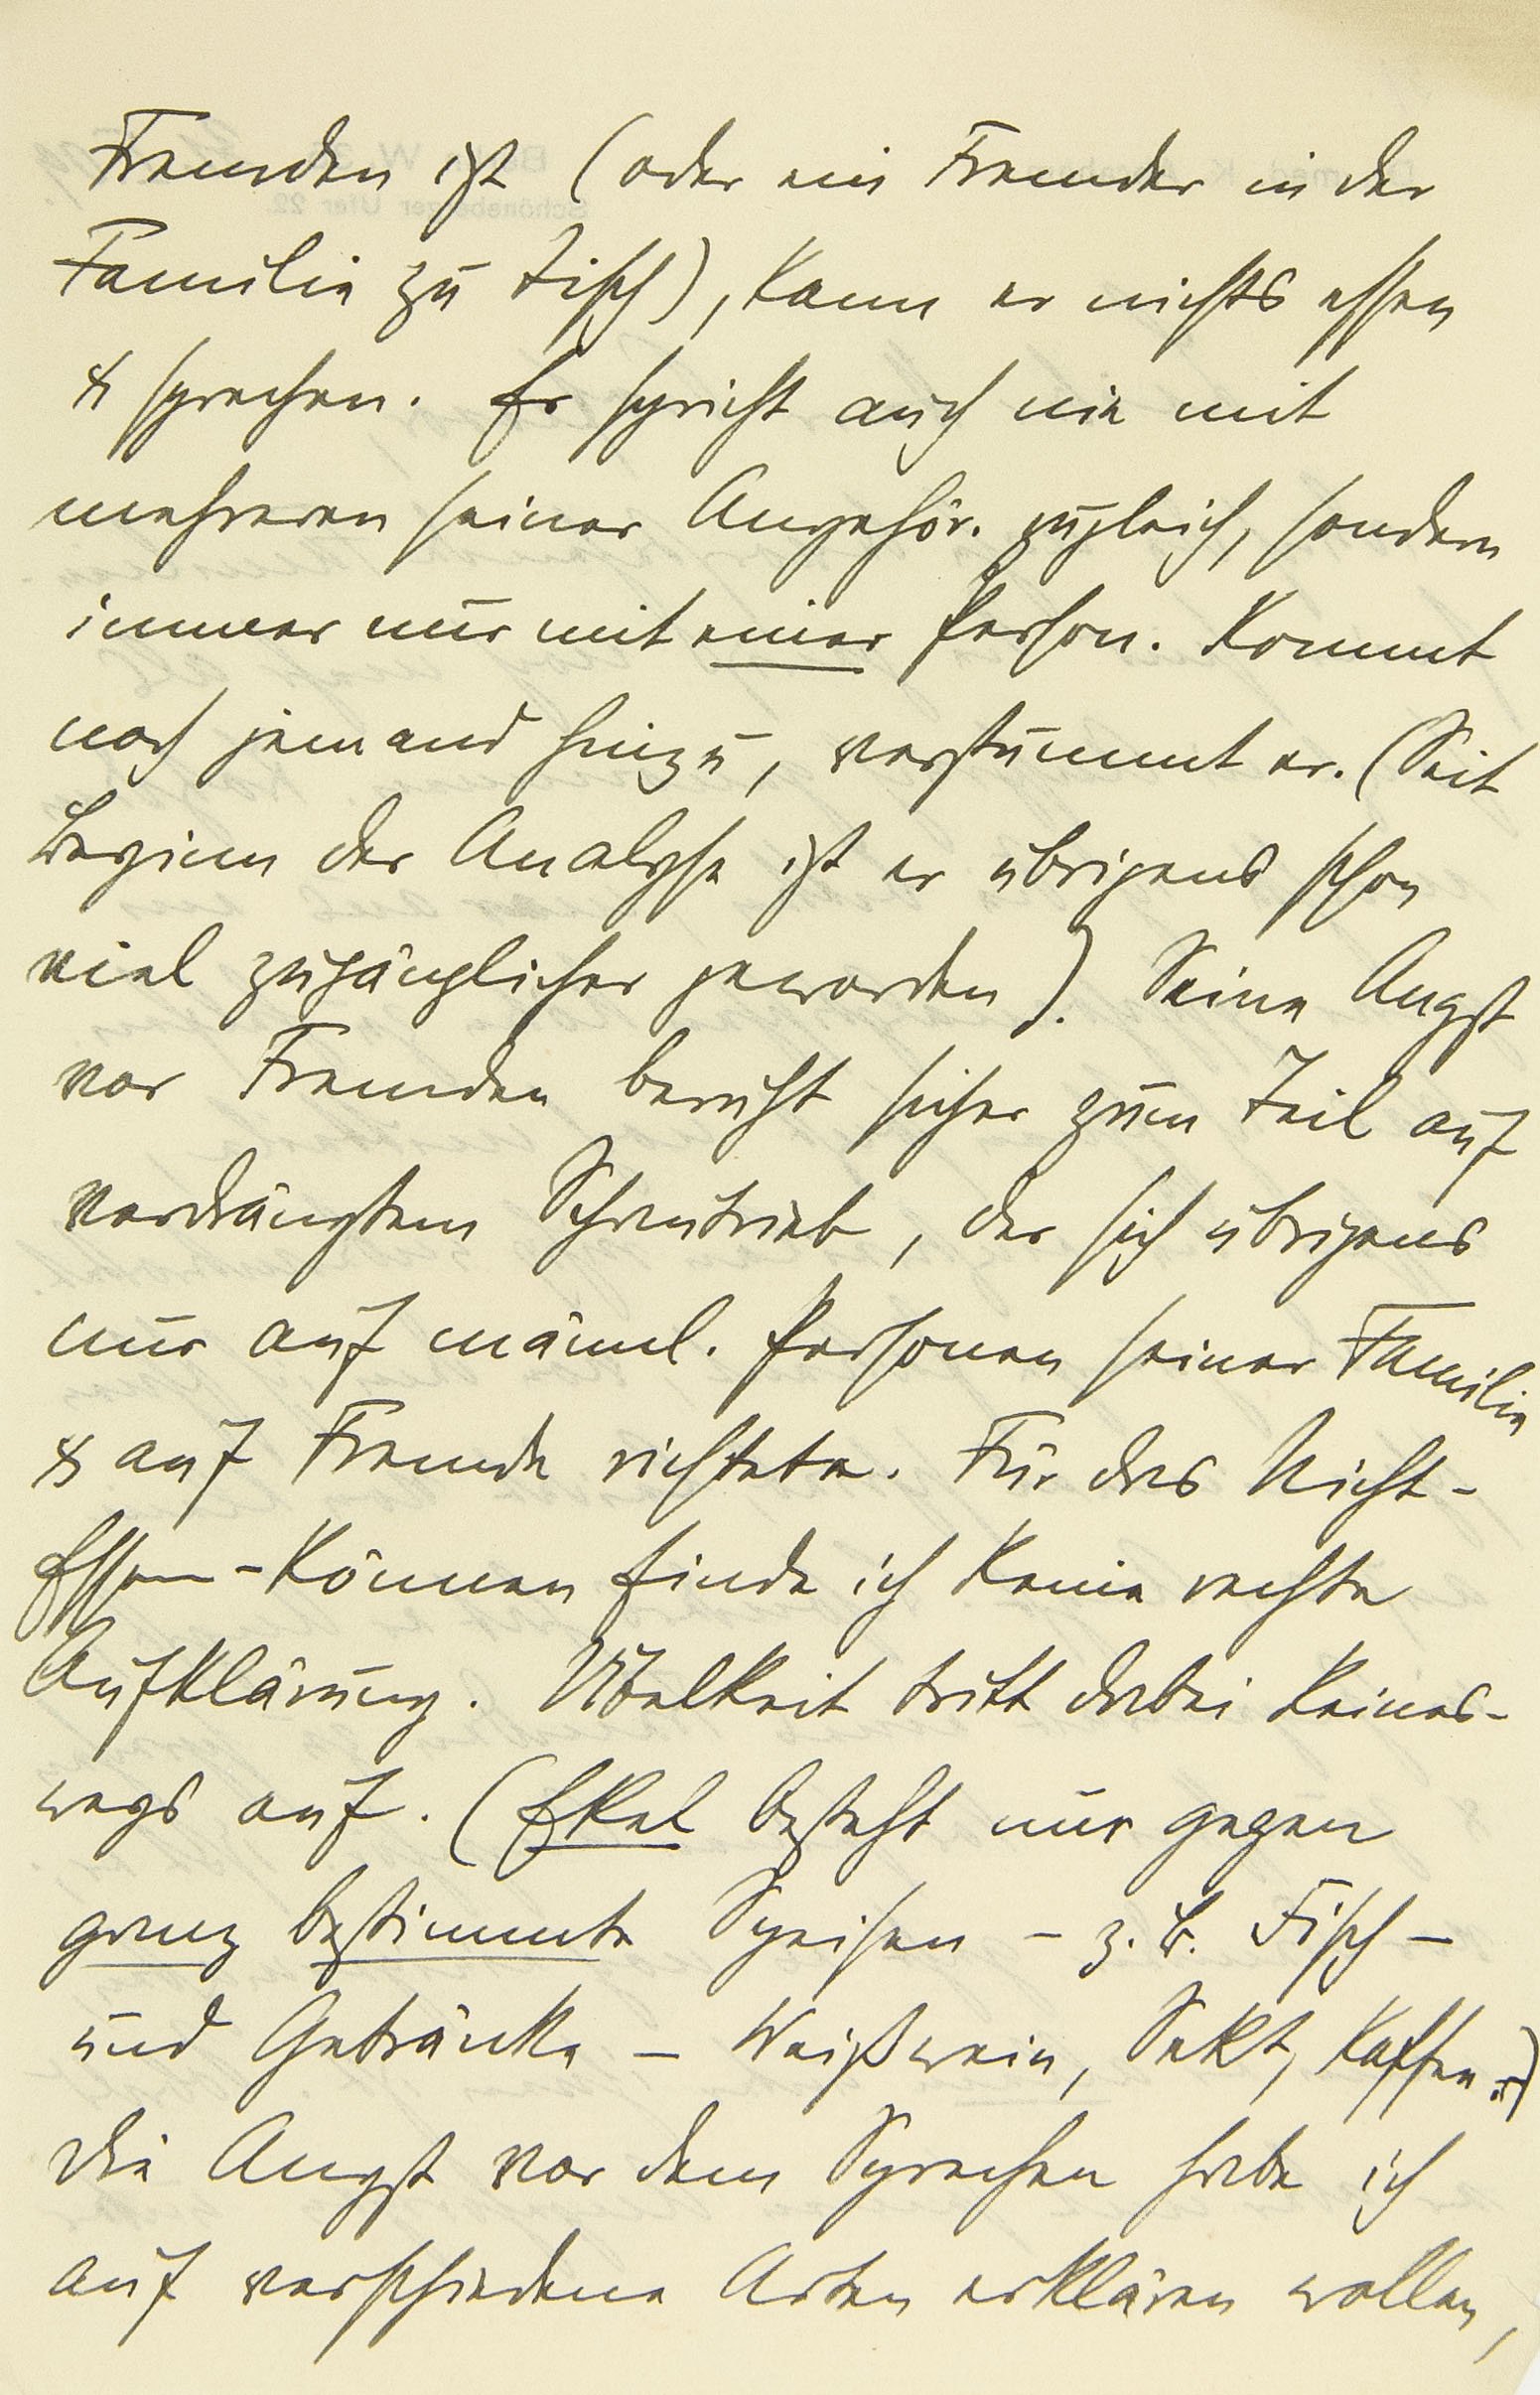 Fremden ist (oder ein Fremder in der
Familie zu Tisch), kann er nichts essen
& sprechen. Er spricht auch nie mit
mehreren seiner Angehör. zugleich, sondern
immer nur mit einer Person. Kommt
noch jemand hinzu, verstummt er. (Seit
Beginn der Analyse ist er übrigens schon
viel zugänglicher geworden). Seine Angst
vor Fremden beruht sicher zum Teil auf
verdrängtem Schautrieb, der sich übrigens
nur auf männl. Personen seiner Familie
& auf Fremde richtete. Für das Nicht-
Essen-Können finde ich keine rechte
Aufklärung. Übelkeit tritt dabei keines-
wegs auf. (Ekel besteht nur gegen
ganz bestimmte Speisen – z.B. Fisch –
und Getränke – Weißwein, Sekt, Kaffee.)
Die Angst vor dem Sprechen habe ich
auf verschiedene Arten erklären wollen,